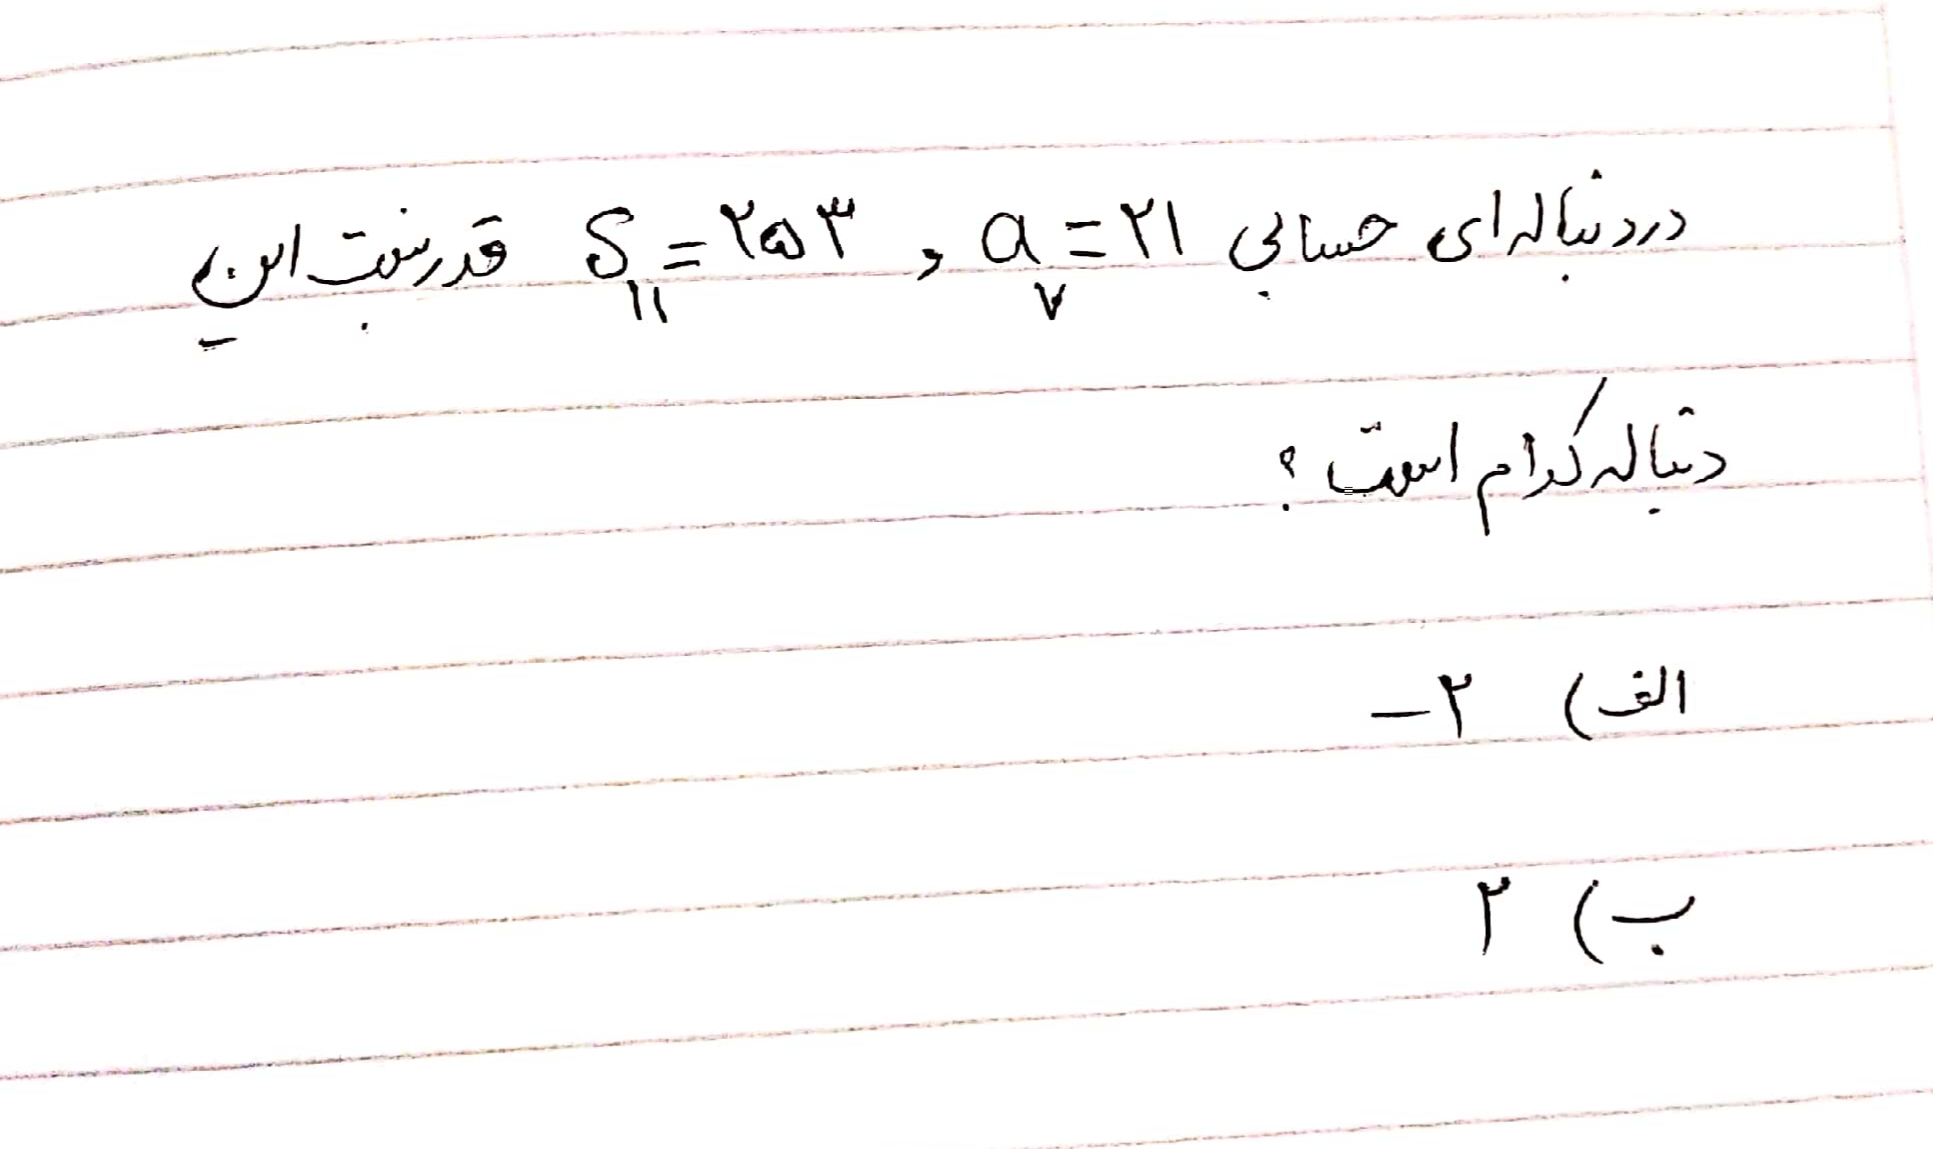 در دنباله ای حسابی a۷ = ۲۱ و S۱۱ = ۲۵۳ قدر نسبت این
دنباله کدام است ؟
الف) ۲-
ب) ۲